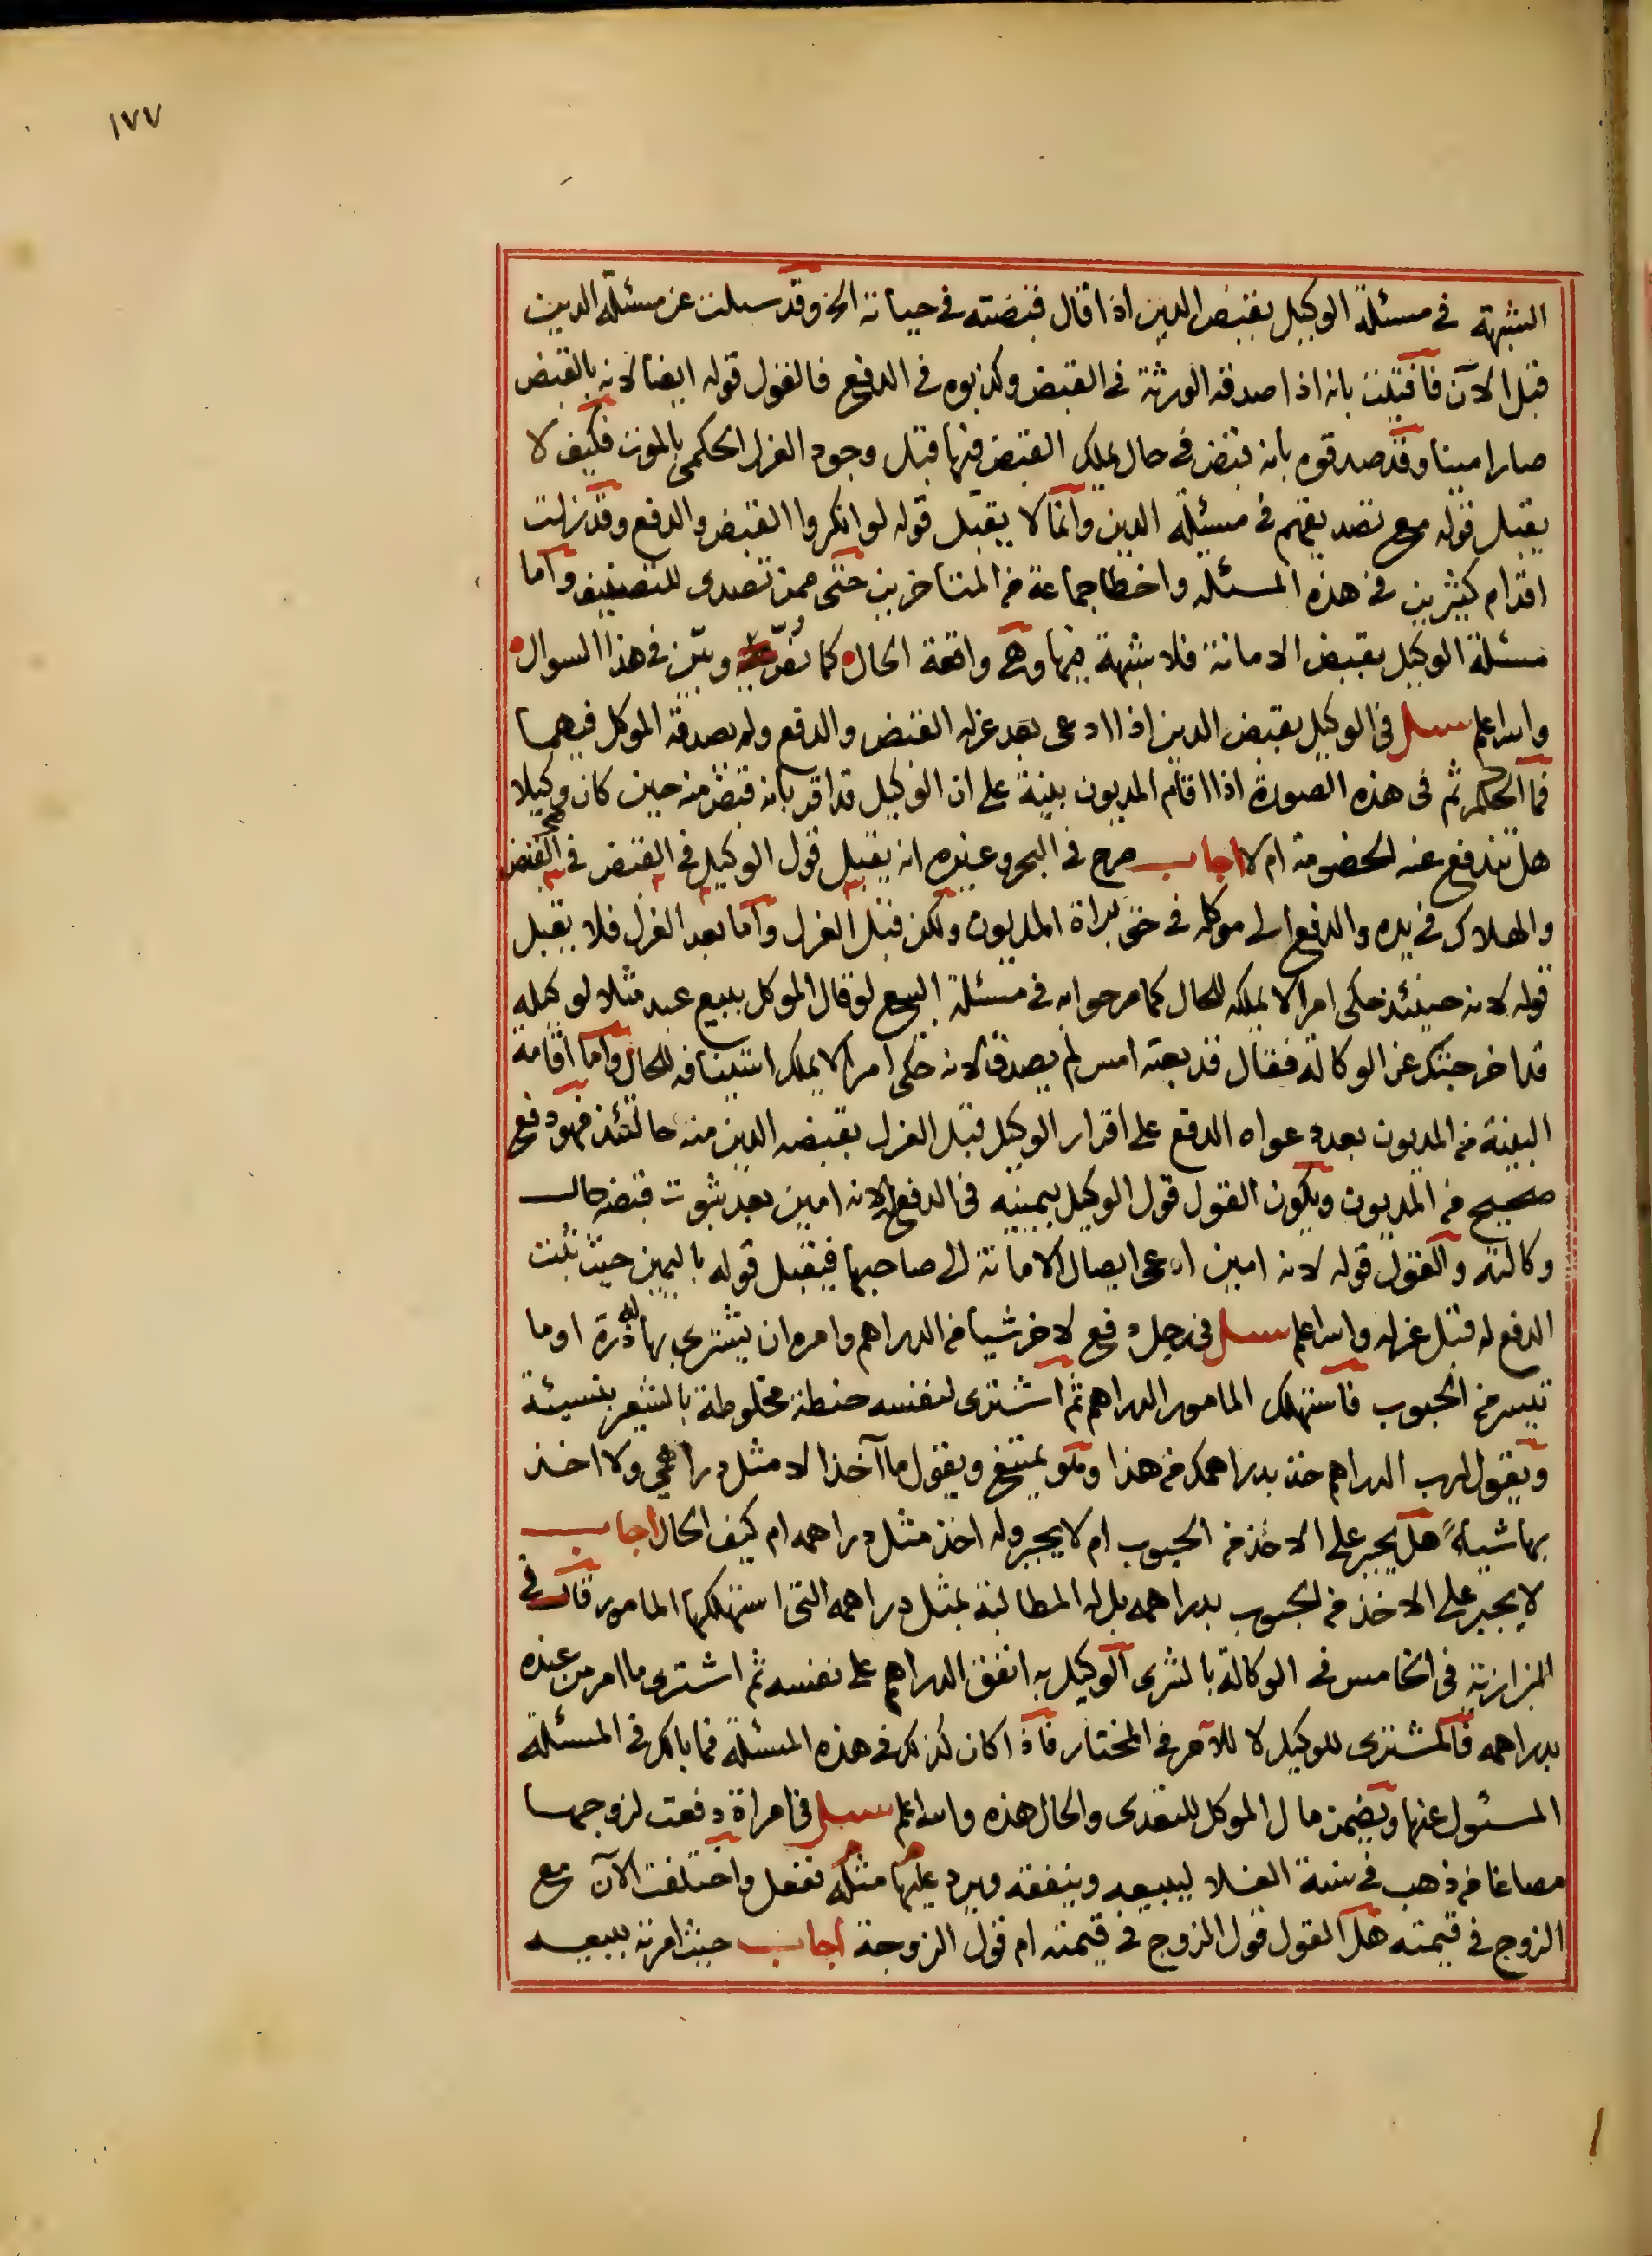 ١٧٧
الشبهة في مسئلة الوكيل بقبض الدين اذا قال قبضته في حياته الخ وقد سئلت عن مسئلة الدين
قبل الآن فافتيت بانه اذا صدقه الورثة في القبض وكذبوه في الدفع فالقول قوله ايضا لانه بالقبض
صار امينا وقد صدقوه بانه قبض في حال يملك القبض فيها قبل وجود العزل الحكمي بالموت فكيف لا
يقبل قوله مع تصديقهم في مسئلة الدين وانما لا يقبل قوله لو انكروا القبض والدفع وقد زلت
اقدام كثيرين في هذه المسئلة واخطا جماعة من المتاخرين حتى ممن تصدى للتصنيف واما
مسئلة الوكيل بقبض الامانة فلا شبهة فيها وهي واقعة الحال كما تقرر وبين في هذا السوال
والله اعلم سئل في الوكيل بقبض الدين اذا ادعى بعد عزله القبض والدفع ولم يصدقه الموكل فيهما
فما الحكم ثم في هذه الصورة اذا اقام المديون بينة على ان الوكيل قد اقر بانه قبض منه حين كان وكيلا
هل تندفع عنه الخصومة ام لا اجاب صرح في البحر وغيره انه يقبل قول الوكيل في القبض في القبض
والهلاك في يده والدفع الى موكله في حق براة المديون ولكن قبل العزل واما بعد العزل فلا يقبل
قوله لانه حينئذ حكى امرا لا يملكه للحال كما صرحوا به في مسئلة البيع لو قال الموكل ببيع عبد مثلا لوكيله
قد اخرجتك عن الوكالة فقال قد بعته امس لم يصدق لانه حكى امرا لا يملك استينافه للحال واما اقامة
البينة من المديون بعد دعواه الدفع على اقرار الوكيل قبل العزل بقبضه الدين منه حالتئذ فهو دفع
صحيح من المديون ويكون القول قول الوكيل بيمينه في الدفع لانه امين بعد ثبوت قبضه حال
وكالته والقول قوله لانه امين ادعى ايصال الامانة الى صاحبها فيقبل قوله باليمين حيث ثبت
الدفع له قبل عزله والله اعلم سئل في رجل دفع لاخر شيا من الدراهم وامره ان يشتري بها له ذرة او ما
تيسر من الحبوب فاستهلك المامور الدراهم ثم اشترى لنفسه حنطة مخلوطة بالشعير بنسيئة
ويقول لرب الدراهم خذ بدراهمك من هذا وهو يمتنع ويقول ما آخذ الا مثل دراهمي ولا اخذ
بها شيأ هل يجبر على الاخذ من الحبوب ام لا يجبر وله اخذ مثل دراهمه ام كيف الحال اجاب
لا يجبر على الاخذ من الحبوب بدراهمه بل له المطالبة بمثل دراهمه التي استهلكها المامور قال في
البزازية في الخامس في الوكالة بالشرى الوكيل به انفق الدراهم على نفسه ثم اشترى ما امر من عنده
بدراهمه فالمشترى للوكيل لا للآمر في المختار فاذا كان كذلك في هذه المسئلة فما بالك في المسئلة
المسئول عنها ويضمن مال الموكل للتعدى والحال هذه والله اعلم سئل في امراة دفعت لزوجها
مصاغا من ذهب في سنة الغلا ليبيعه وينفقه ويرد عليها مثله ففعل واختلفت الآن مع
الزوج في قيمته هل القول قول الزوج في قيمته ام قول الزوجة اجاب حيث امرته ببيعه